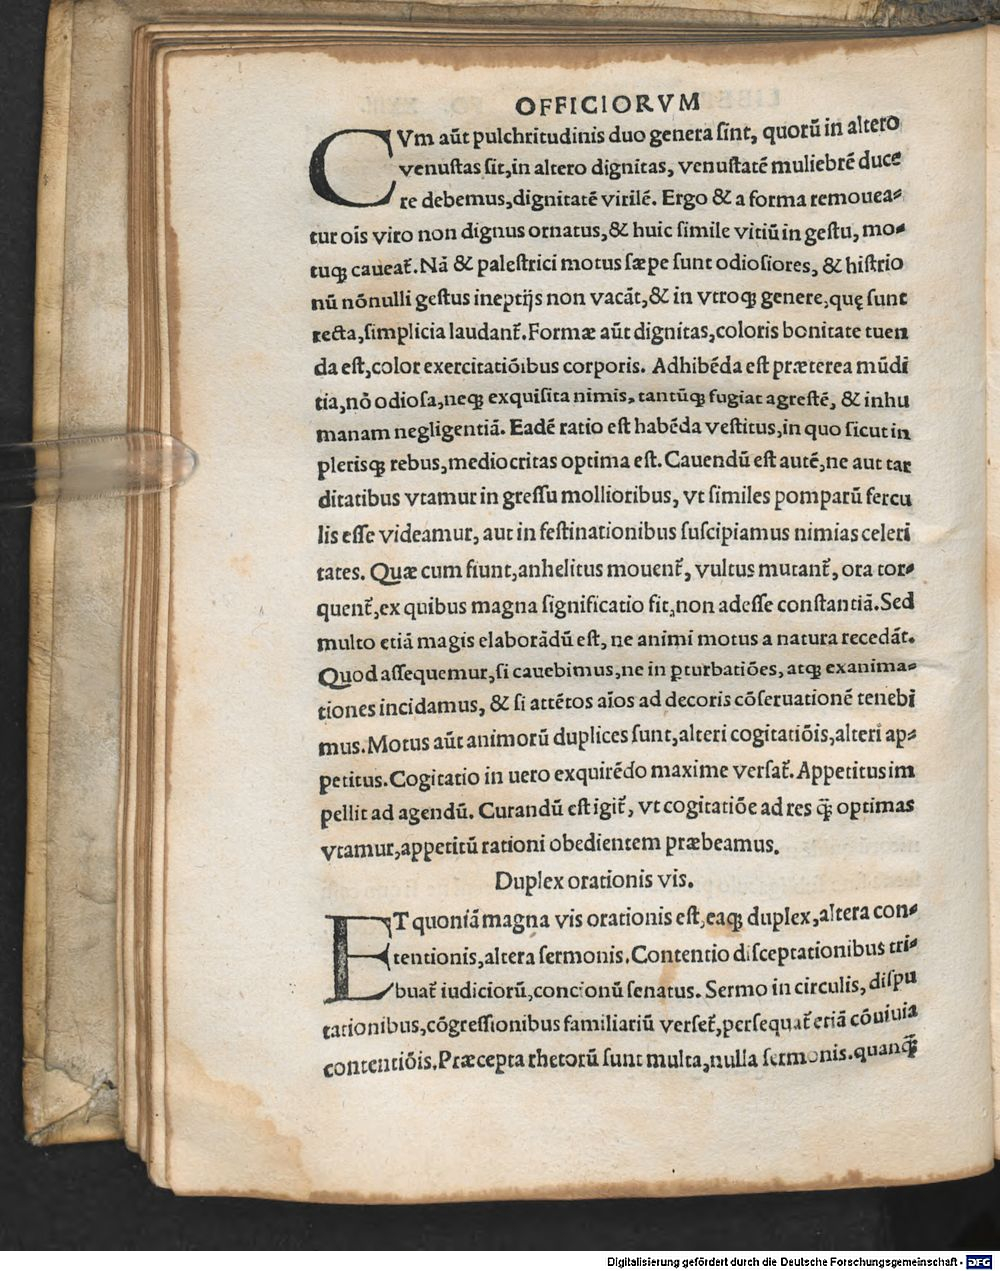 OFFICIORVM
CVm aūt pulchritudinis duo genera ſint, quorū in altero
venuſtas ſit,in altero dignitas, venuſtatē muliebrē duce
re debemus,dignitatē virilē. Ergo & a forma remouea⸗
tur oīs viro non dignus ornatus,& huic ſimile vitiū in geſtu, mo⸗
tuqꝫ caueat᷑.Nā & paleſtrici motus ſæpe ſunt odioſiores, & hiſtrio
nū nōnulli geſtus ineptijs non vacāt,& in vtroqꝫ genere,quę ſunt
recta,ſimplicia laudant᷑.Formæ aūt dignitas,coloris bonitate tuen
da eſt,color exercitatiōibus corporis. Adhibēda eſt præterea mūdi
tia,nō odioſa,neqꝫ exquiſita nimis, tantūqꝫ fugiat agreſtē, & inhu
manam negligentiā. Eadē ratio eſt habēda veſtitus,in quo ſicut in
pleriſqꝫ rebus,mediocritas optima eſt.Cauendū eſt autē,ne aut tar
ditatibus vtamur in greſſu mollioribus, vt ſimiles pomparū fercu
lis eſſe videamur, aut in feſtinationibus ſuſcipiamus nimias celeri
tates. Quæ cum fiunt,anhelitus mouent᷑, vultus mutant᷑, ora tor⸗
quent᷑,ex quibus magna ſignificatio fit,non adeſſe conſtantiā.Sed
multo etiā magis elaborādū eſt, ne animi motus a natura recedāt.
Quod aſſequemur,ſi cauebimus,ne in ꝑturbatiōes, atqꝫ exanima⸗
tiones incidamus, & ſi attētos aīos ad decoris cōſeruationē tenebi
mus.Motus aūt animorū duplices ſunt,alteri cogitatiōis,alteri ap⸗
petitus.Cogitatio in uero exquirēdo maxime verſat᷑.Appetitus im
pellit ad agendū. Curandū eſt igit᷑, vt cogitatiōe ad res q̄ꝫ optimas
vtamur,appetitū rationi obedientem præbeamus.
Duplex orationis vis.
ET quoniā magna vis orationis eſt,eaqꝫ duplex,altera con⸗
tentionis,altera ſermonis.Contentio diſceptationibus tri⸗
buat᷑ iudiciorū,concionū ſenatus. Sermo in circulis, diſpu
tationibus,cōgreſſionibus familiariū verſet᷑,perſequat᷑ etiā cōuiuia
contentiōis.Præcepta rhetorū ſunt multa,nulla ſermonis.quanq̄ꝫ
Digitalisierung gefördert durch die Deutsche Forschungsgemeinschaft - DFG